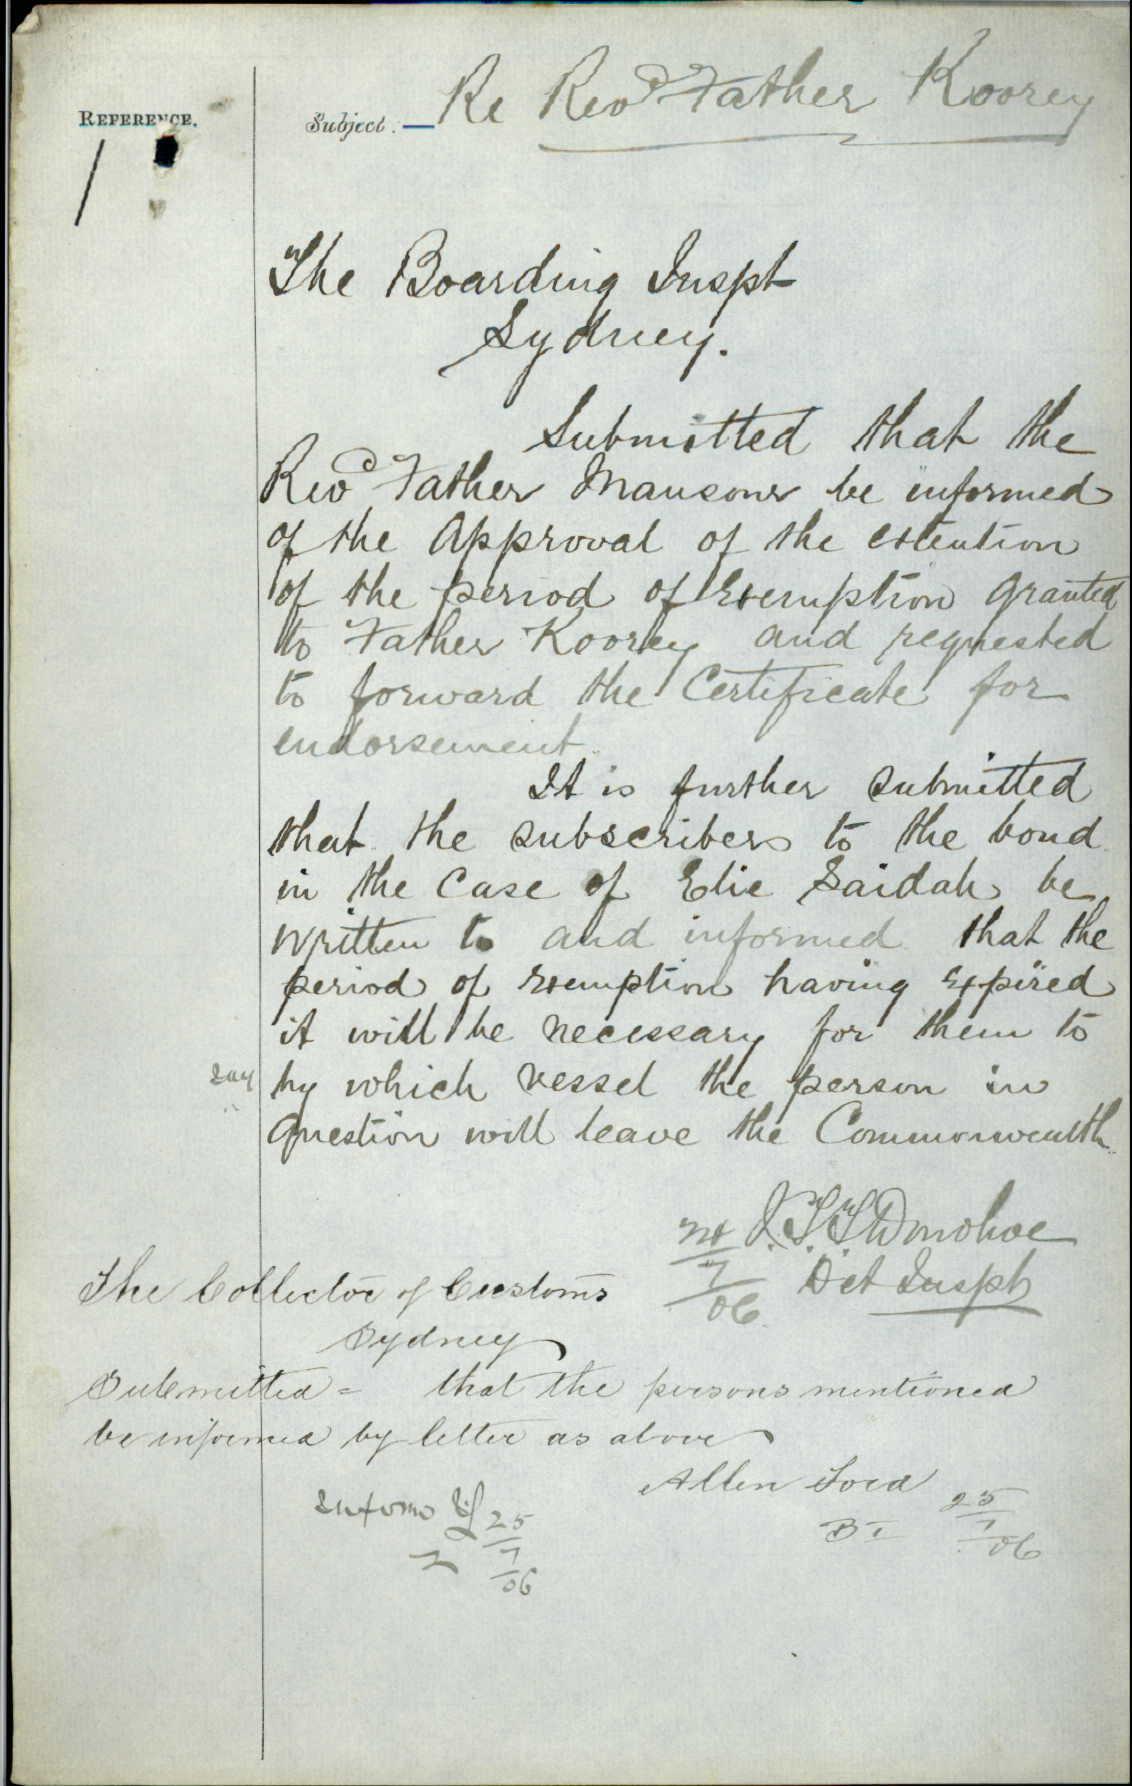 REFERENCE.
Subject:— Re Revd Father Koorey
The Boarding Inspt
Sydney.
Submitted that the
Revd Father Mansour be informed
of the Approval of the extention
of the period of Exemption granted
to Father Koorey and requested
to forward the Certificate for
endorsement.
It is further submitted
that the subscribers to the bond
in the Case of Elie Saidah be
written to and informed that the
period of exemption having expired
it will be necessary for them to
say by which vessel the person in
question will leave the Commonwealth.
Donohoe
24/7/06 Det Inspt
The Collector of Customs
Sydney
Submitted = that the persons mentioned
be informed by letter as above
Allen Ford
BI 25/7/06
Inform 25/7/06